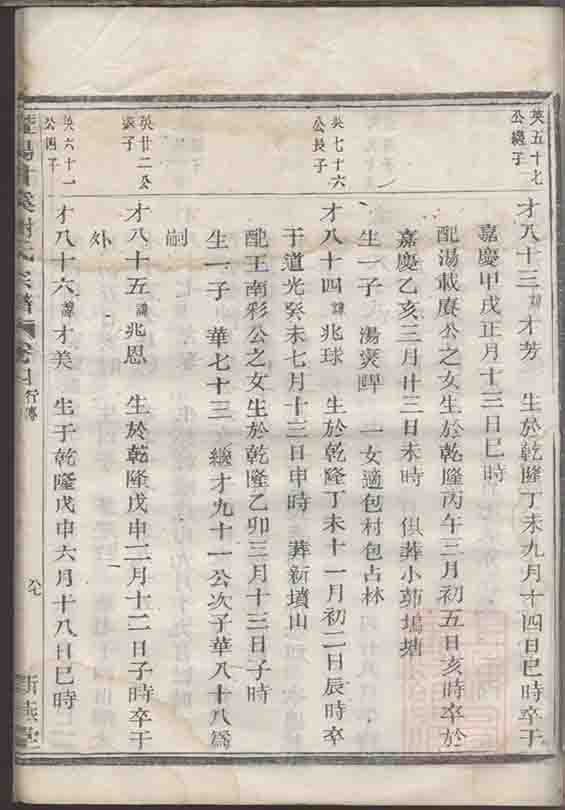 英五十七
公繼子
才八十三 諱才芳 生於乾隆丁未九月十四日巳時卒于
嘉慶甲戌正月十三日巳時
配湯載賡公之女生於乾隆丙午三月初五日亥時卒於
嘉慶乙亥三月廿三日未時 俱葬小茆塢塘
生一子 湯奭 一女適包村包占林
英七十六
公長子
才八十四 諱兆球 生於乾隆丁未十一月初二日辰時卒
于道光癸未七月十三日申時 葬新墳山
配王南彩公之女生於乾隆乙卯三月十三日子時
生一子 華七十三 繼才九十一公次子華八十八爲
嗣
英廿二公
長子
才八十五 諱兆恩 生於乾隆戊申二月十二日子時卒于
外
英六十一
公四子
才八十六 諱才美 生于乾隆戊申六月十八日巳時
氏宗譜 行傳